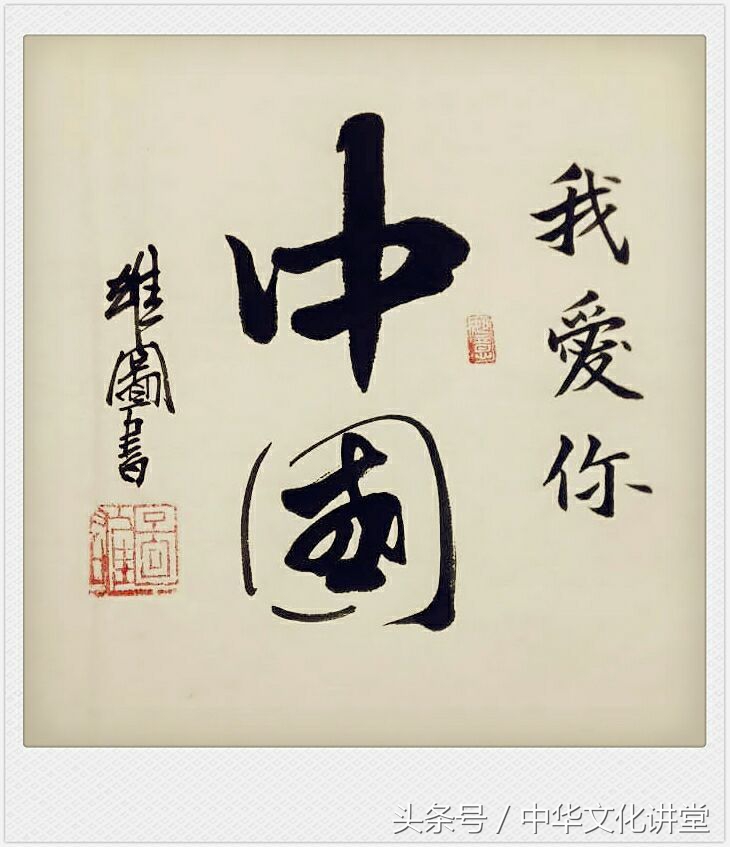 我愛你
中國
雄圖書
头条号 / 中华文化讲堂